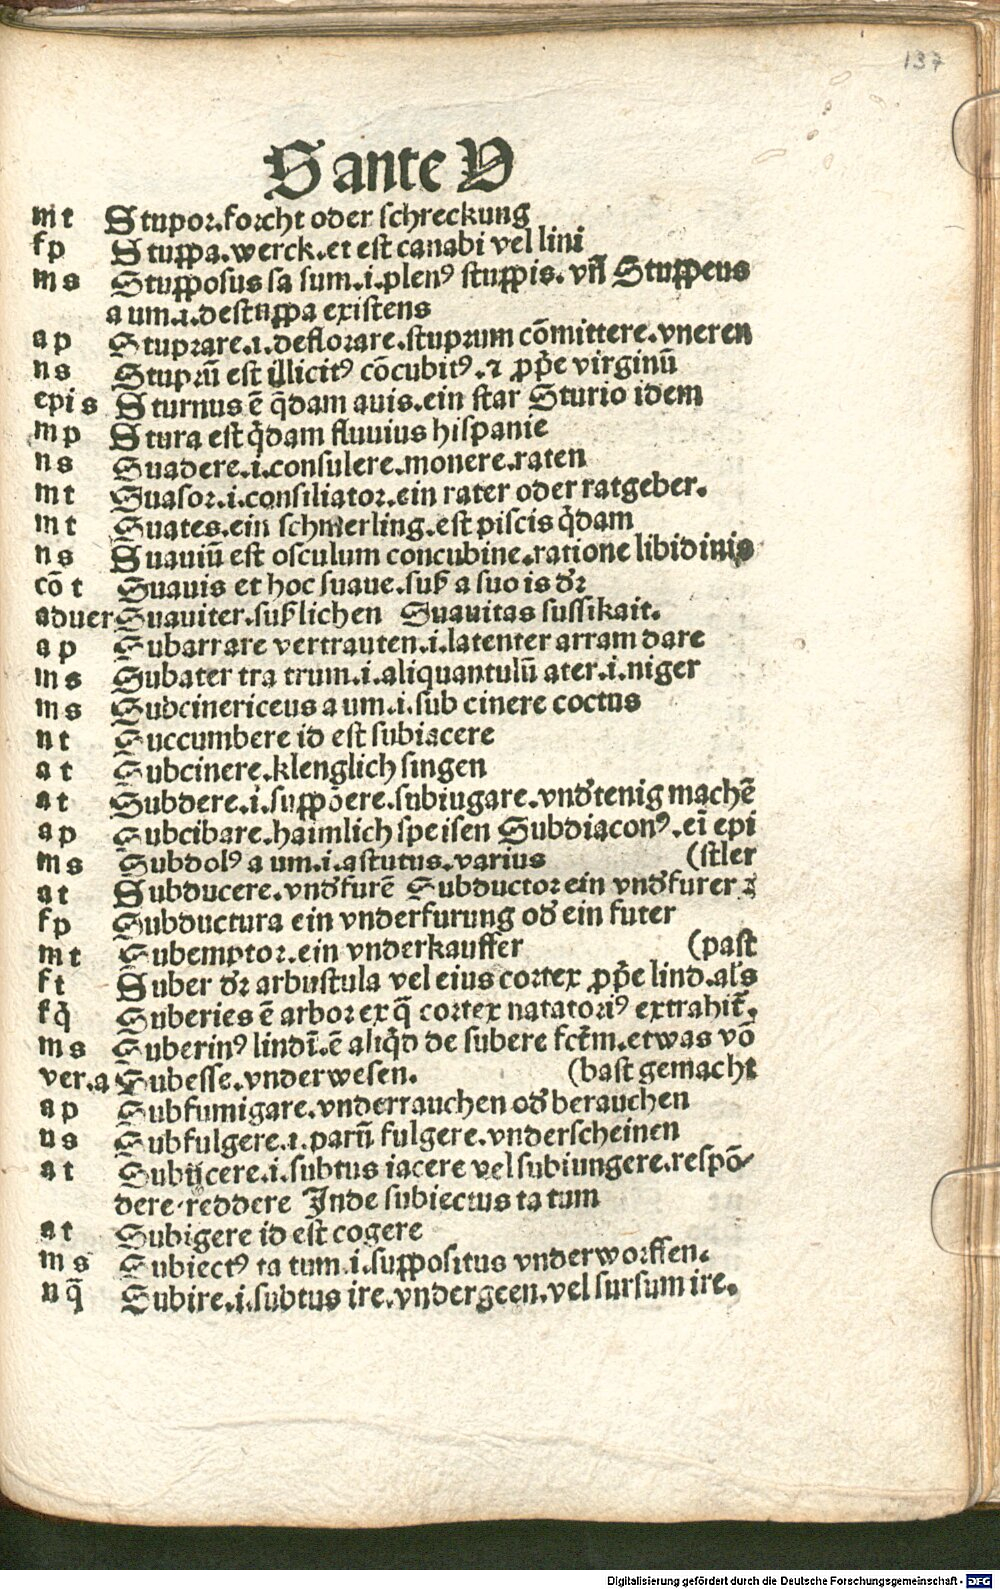 137
S ante V
m t Stupor.forcht oder schreckung
f p Stuppa.werck.et est canabi vel lini
m s Stupposus sa sum.i.plenꝰ stuppis. vn̄ Stuppeus
a um.i.de stuppa existens
a p Stuprare.i.deflorare.stuprum cōmittere.vneren
n s Stuprū est illicitꝰ cōcubitꝰ.⁊ ꝓp̄e virginū
epi s Sturnus ē q̄dam auis.ein star Sturio idem
m p Stura est q̄dam fluuius hispanie
n s Suadere.i.consulere.monere.raten
m t Suasor.i.consiliator.ein rater oder ratgeber.
m t Suates.ein schmerling.est piscis q̄dam
n s Suauiū est osculum concubine.ratione libidinis
cō t Suauis et hoc suaue.suß a suo is dr̄
aduer Suauiter.sußlichen Suauitas sussikait.
a p Subarrare vertrauten.i.latenter arram dare
m s Subater tra trum.i.aliquantulū ater.i.niger
m s Subcinericeus a um.i.sub cinere coctus
n t Succumbere id est subiacere
a t Subcinere.klenglich singen
a t Subdere.i.suppōere.subiugare.vnd̄tenig machē
a p Subcibare.haimlich speisen Subdiaconꝰ.ei̅ epi
m s Subdolꝰ a um.i.astutus.varius (stler
a t Subducere.vnd̄furē Subductor ein vnd̄furer ⁊
f p Subductura ein vnderfurung od̄ ein futer
m t Subemptor.ein vnderkauffer (past
f t Suber dr̄ arbustula vel eius cortex ꝓp̄e lind.als
f q̄ Suberies ē arbor ex q̄ cortex natatoriꝰ extrahit̄.
m s Suberinꝰ lindī.ē aliq̄d de subere fct̄m.etwas vō
ver.a Subesse.vnderwesen. (bast gemacht
a p Subfumigare.vnderrauchen od̄ berauchen
n s Subfulgere.i.parū fulgere.vnderscheinen
a t Subijcere.i.subtus iacere vel subiungere.respō-
dere.reddere Inde subiectus ta tum
a t Subigere id est cogere
m s Subiectꝰ ta tum.i.suppositus vnderworffen.
n q̄ Subire.i.subtus ire.vndergeen.vel sursum ire.
Digitalisierung gefördert durch die Deutsche Forschungsgemeinschaft - DFG